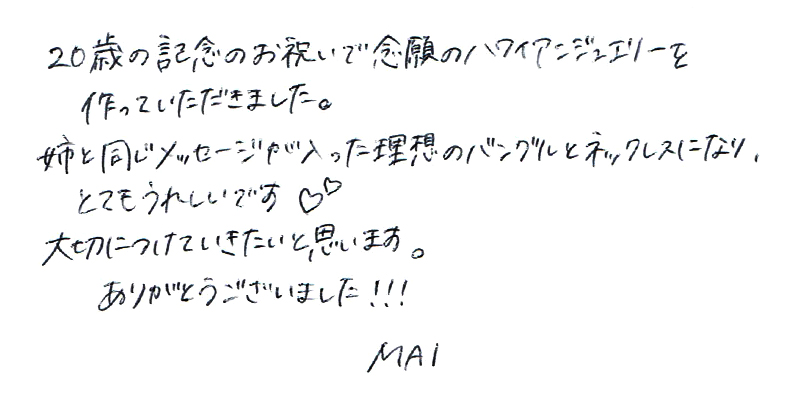 20歳の記念のお祝いで念願のハワイアンジュエリーを
作っていただきました。
姉と同じメッセージが入った理想のバングルとネックレスになり、
とてもうれしいです♡♡
大切につけていきたいと思います。
ありがとうございました!!!
MAI